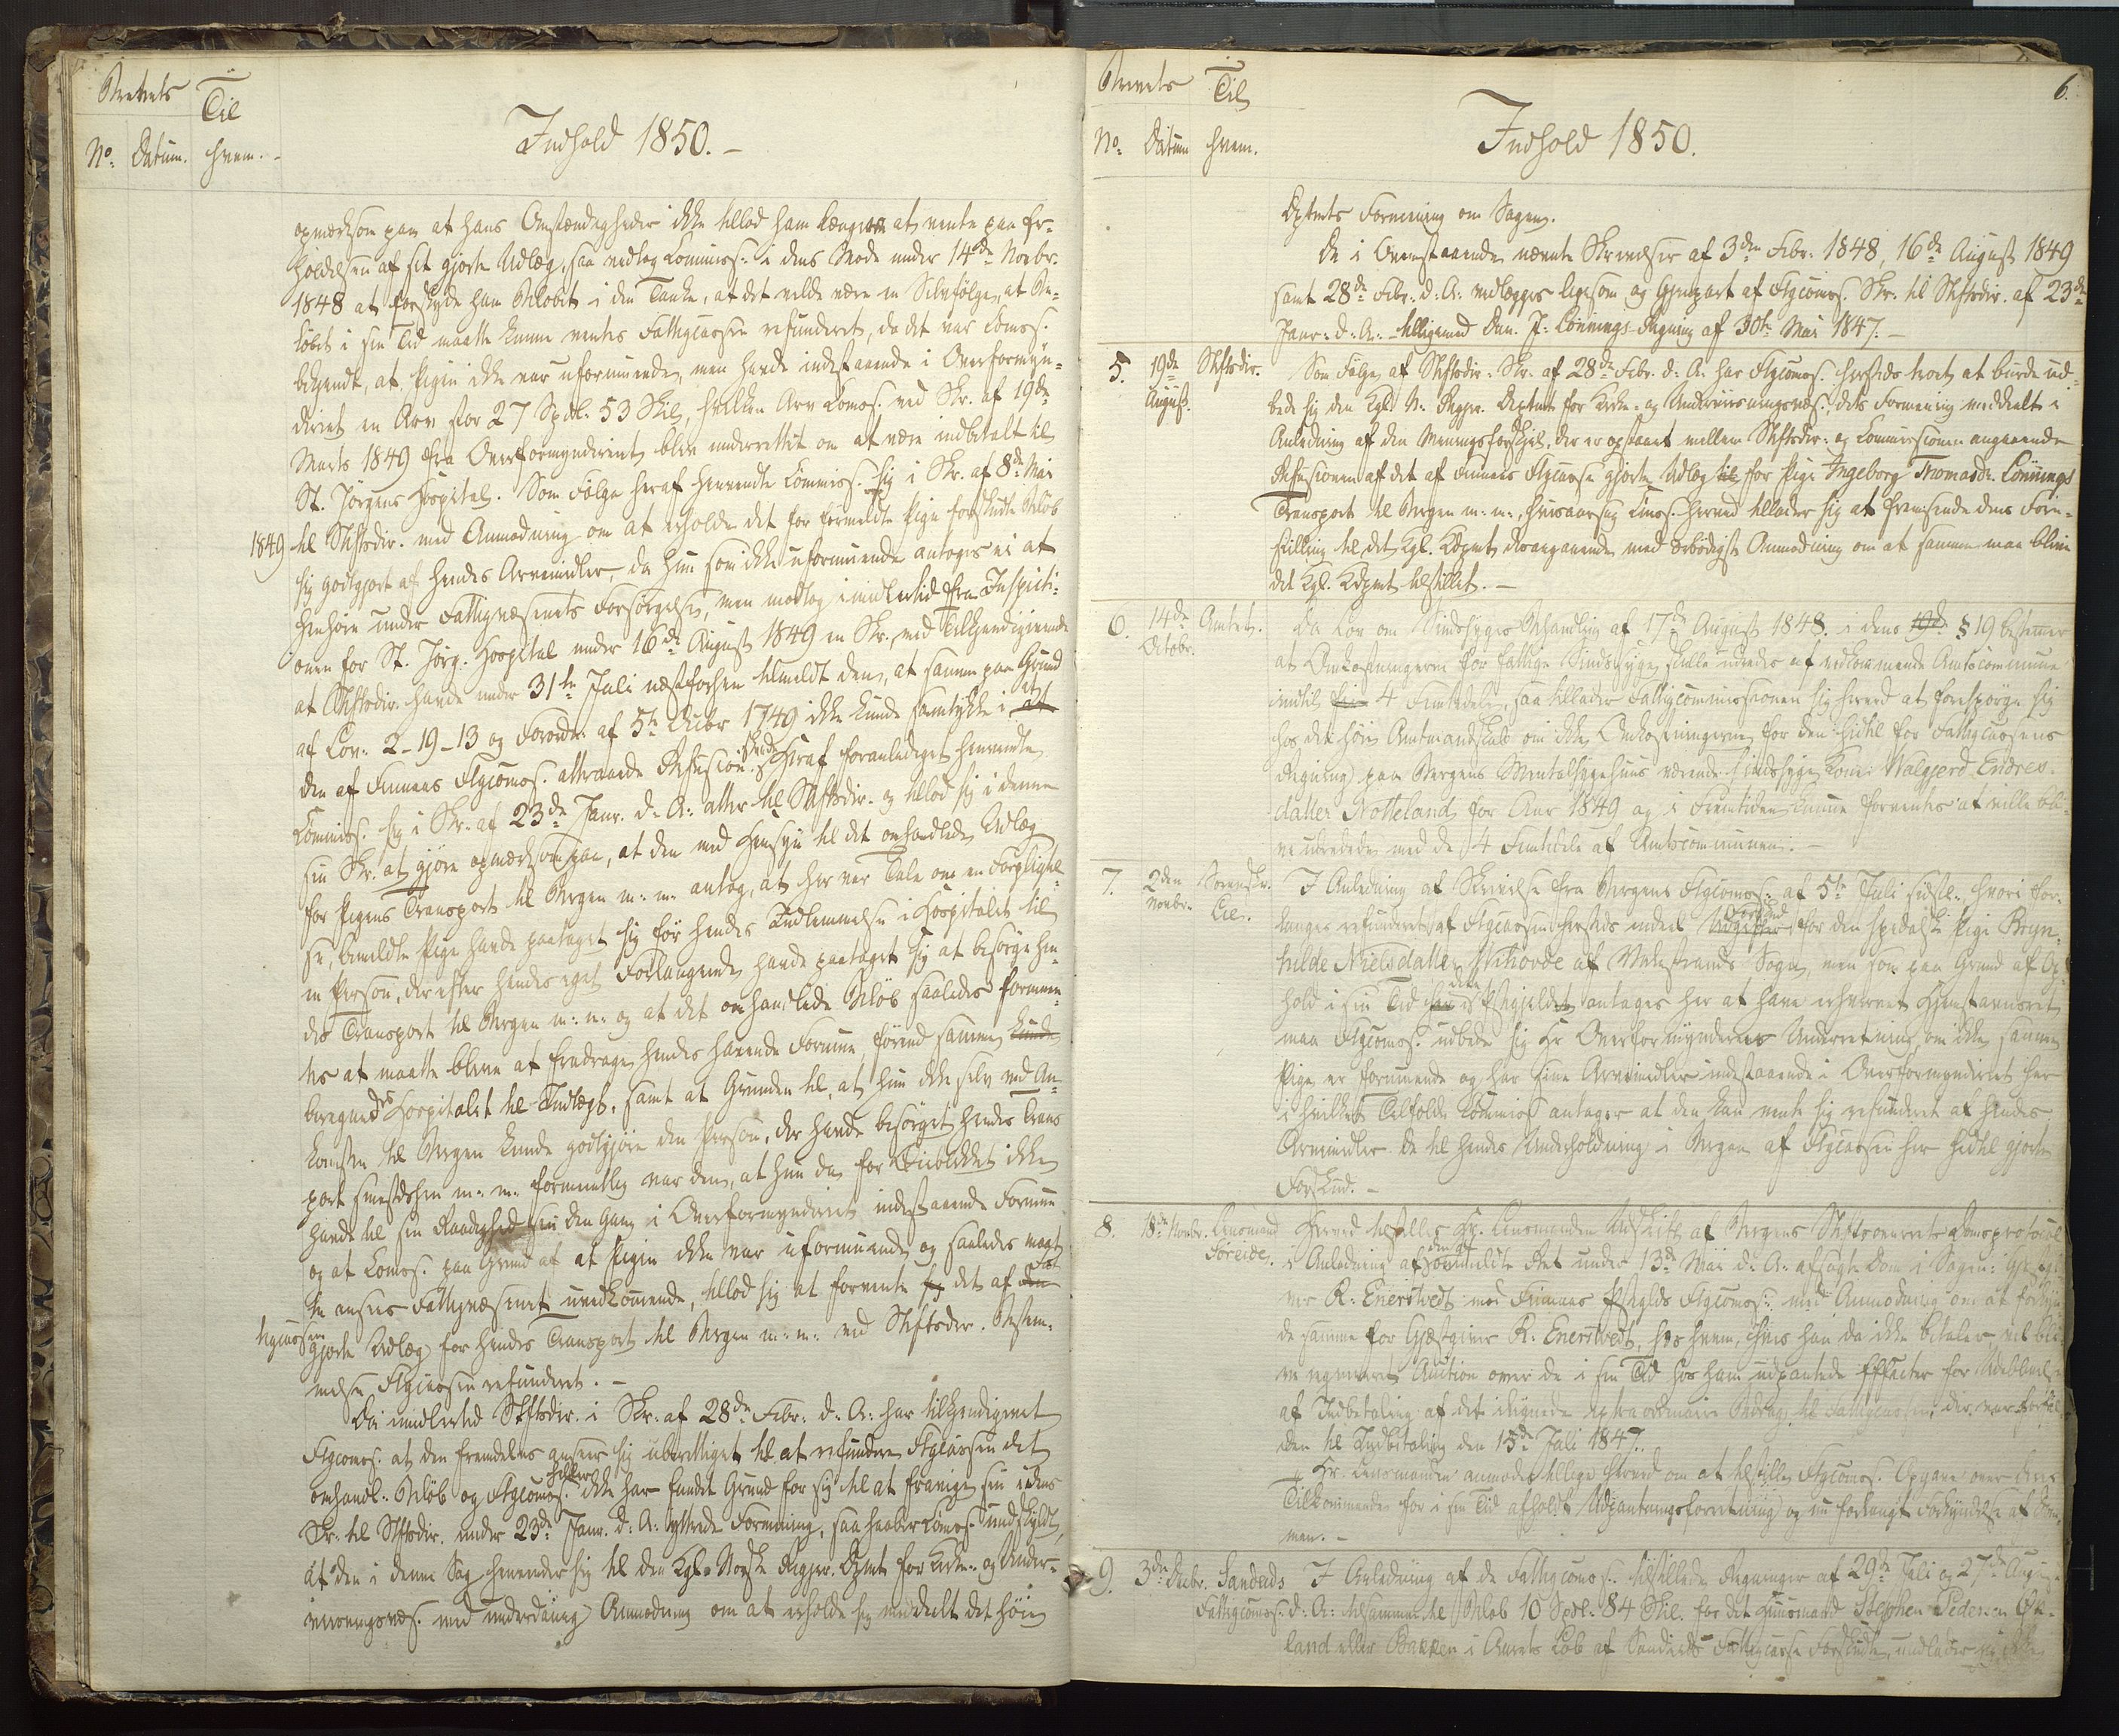 Brevets Til
No: Datum. hvem.
Indhold 1850.
opmærksom paa at hans Omstændigheder ikke tillod ham længere at vente paa Er-
holdelsen af sit gjorte Udlæg, saa vedtog Commiss: i dens Møde under 14de Novbr.
1848 at forskyde ham Beløbet i den Tanke, at det vilde være en Selvfølge, at Be-
løbet i sin Tid maatte kunne ventes Fattigcassen refunderet, da det var Comms.
bekjendt, at Pigen ikke var uformuende, men havde indestaaende i Overformyn-
deriet en Arv stor 27 Spdl. 53 Skil, hvilken Arv Comms. ved Skr. af 19de
Marts 1849 fra Overformynderiet blev underrettet om at være indbetalt til
St. Jørgens Hospital. Som Følge heraf henvendte Commiss. sig i Skr. af 8de Mai
1849 til Stiftsdir. med Anmodning om at erholde det for formeldte Pige forskudte Beløb
sig godtgjort af hendes Arvemidler, da hun som ikke uformuende antoges ei at
henhøre under Fattigvæsenets Forsørgelse, men modtog imidlertid fra Inspecti-
onen for St. Jørg. Hospital under 16de August 1849 en Skr. med Tilkjendegivende
at Stiftsdir. havde under 31te Juli næstforhen tilmeldt den, at samme paa Grund
af Lov: 2-19-13 og Forordn: af 5te Decbr 1749 ikke kunde samtykke i at
den af Finnaas Ftgcomms. attraaede Refusion skede. Heraf foranlediget henvendte
Commiss. sig i Skr. af 23de Janr. d. A: atter til Stiftsdir. og tillod sig i denne
sin Skr. at gjøre opmærksom paa, at den med Hensyn til det omhandlede Udlæg
for Pigens Transport til Bergen m: m: antog, at her var Tale om en Forpligtel-
se, bemeldte Pige havde paataget sig før hendes Indlemmelse i Hospitalet til
en Person, der efter hendes eget Forlangende havde paataget sig at besørge hen-
des Transport til Bergen m: m: og at det omhandlede Beløb saaledes formeen-
tes at maatte blive at fradrage hendes havende Formue, førend samme kunde
beregnedes Hospitalet til Indtægt, samt at Grunden til, at hun ikke selv ved An-
komsten til Bergen kunde godtgjøre den Person, der havde besørget hendes Trans
port sammestedshen m: m: formentlig var den, at hun da for Øieblikket ikke
havde til sin Raadighed sin den Gang i Overformynderiet indestaaende Formue
og at Comms. paa Grund af at Pigen ikke var uformuende og saaledes maat
te ansees Fattigvæsenet uvedkommende, tillod sig at forvente sig det af Fat
tigcassen gjorte Udlæg for hendes Transport til Bergen m: m: ved Stiftsdir. Bestem-
melse Ftgcassen refunderet.
Da imidlertid Stiftsdir. i Skr. af 28de Febr. d. A: har tilkjendegivet
Ftgcomms. at den fremdeles anseer sig uberettiget til at refundere Ftgcassen det
omhandl: Beløb og Ftgcomms. heller ikke har fundet Grund for sig til at fravige sin i dens
Skr. til Stiftsdir. under 23de Janr. d. A: yttrede Formening, saa haaber Comms. undskyldt,
at den i denne Sag henvender sig til den Kgl. Norske Regjer. Dpmt for Kirke- og Under-
viisningsvæs. med underdanig Anmodning om at erholde sig meddeelt det høie
Brevets Til
No: Datum hvem.
Indhold 1850.
6.
Dptmts Formening om Sagen.
De i Ovenstaaende nævnte Skrivelser af 3die Febr: 1848, 16de August 1849
samt 28de Febr. d: A: vedlægges ligesom og Gjenpart af Ftgcomms. Skr. til Stiftsdir. af 23de
Janr: d: A: tilligemed Dan. J: Lønnings Regning af 30te Mai 1847.
5. 19de August. Stiftsdir. Som Følge af Stiftsdir. Skr. af 28de Febr. d: A: har Ftgcomms. hersteds troet at burde ud-
bede sig den Kgl. N. Regjer. Deptmt for Kirke- og Underviisningsvæs., dets Formening meddeelt i
Anledning af den Meningsforskjel, der er opstaaet mellem Stiftsdir. og Commissionen angaaende
Refusionen af det af Finnaas Ftgcasse gjorte Udlæg til for Pige Ingeborg Thomasdr. Lønnings
Transport til Bergen m: m:, hvisaarsag Comms. herved tillader sig at fremsende dens Fore-
stilling til det Kgl. Kdpmt desangaaende med ærbødigst Anmodning om at samme maa blive
det Kgl. Kdpmt tilstillet.
6. 14de Octobr. Amtet. Da Lov om Sindssyges Behandling af 17de August 1848 i dens 19de § 19 bestemmer
at Omkostningerne for fattige Sindssyge skulle udredes af vedkommende Amtscommune
indtil 4 Femtedele, saa tillader Fattigcommissionen sig herved at forespørge sig
hos det høie Amtmandskab om ikke Omkostningerne for den hidtil for Fattigcassens
Regning paa Bergens Mentalsygehuus værende sindssyge Kone Walgjerd Endres-
datter Notteland for Aar 1849 og i Fremtiden kunne forventes at ville bli-
ve udredede med de 4 Femtedele af Amtscommunen.
7. 2den Novbr. Sorenskr. Lie. I Anledning af Skrivelse fra Bergens Ftgcomms: af 5te Juli sidstl. hvori for-
langes refunderet af Ftgcassen hersteds endeel Forskud for den spedalske Pige Bryn-
hilde Nielsdatter Stihovde af Valestrands Sogn, men som paa Grund af Op-
hold i sin Tid her i Præstegjeldet antages her at have erhvervet Hjemstavnsret
maa Ftgcomms. udbede sig Hr Overformynderens Underretning, om ikke samme
Pige er formuende og har sine Arvemidler indestaaende i Overformynderiet her
i hvilket Tilfælde Commiss antager at den kan vente sig refunderet af hendes
Arvemidler de til hendes Underholdning i Bergen af Ftgcassen her hidtil gjorte
Forskud.
8. 18de Novbr. Lensmand Søreide. Herved tilstilles Hr. Lensmanden Udskrift af Bergens Stiftsoverrets Domsprotocol
i Anledning af den af bemeldte Ret under 13de Mai d: A: afsagte Dom i Sagen: Gjæstgi-
ver R: Enerstvedt mod Finnaas Pstgjlds Ftgcomms: med Anmodning om at forkyn-
de samme for Gjæstgiver R. Enerstvedt, hos hvem, hvis han da ikke betaler, vil bli-
ve requireret Auction over de i sin Tid hos ham udpantede Effecter for Udeblivelse
af Indbetaling af det lignede extraordinaire Bidrag til Fattigcassen, der var forfal-
den til Indbetaling den 15de Juli 1847.
Hr. Lensmanden anmodes tillige herved om at tilstille Ftgcomms. Opgave over dens
Tilkommende for i sin Tid afholdt Udpantningsforretning og nu forlangt Forkyndelse af Dom-
men.
9. 3die Decbr. Sandeids Fattigcomms: I Anledning af de Fattigcomms. tilstillede Regninger af 29de Juli og 27de August
d: A: tilsammen til Beløb 10 Spdl: 84 Skil. for det Huusmand Stephen Pedersen Øk-
land eller Bakken i Aarets Løb af Sandeids Fattigcasse Forskudte, undlader sig ikke